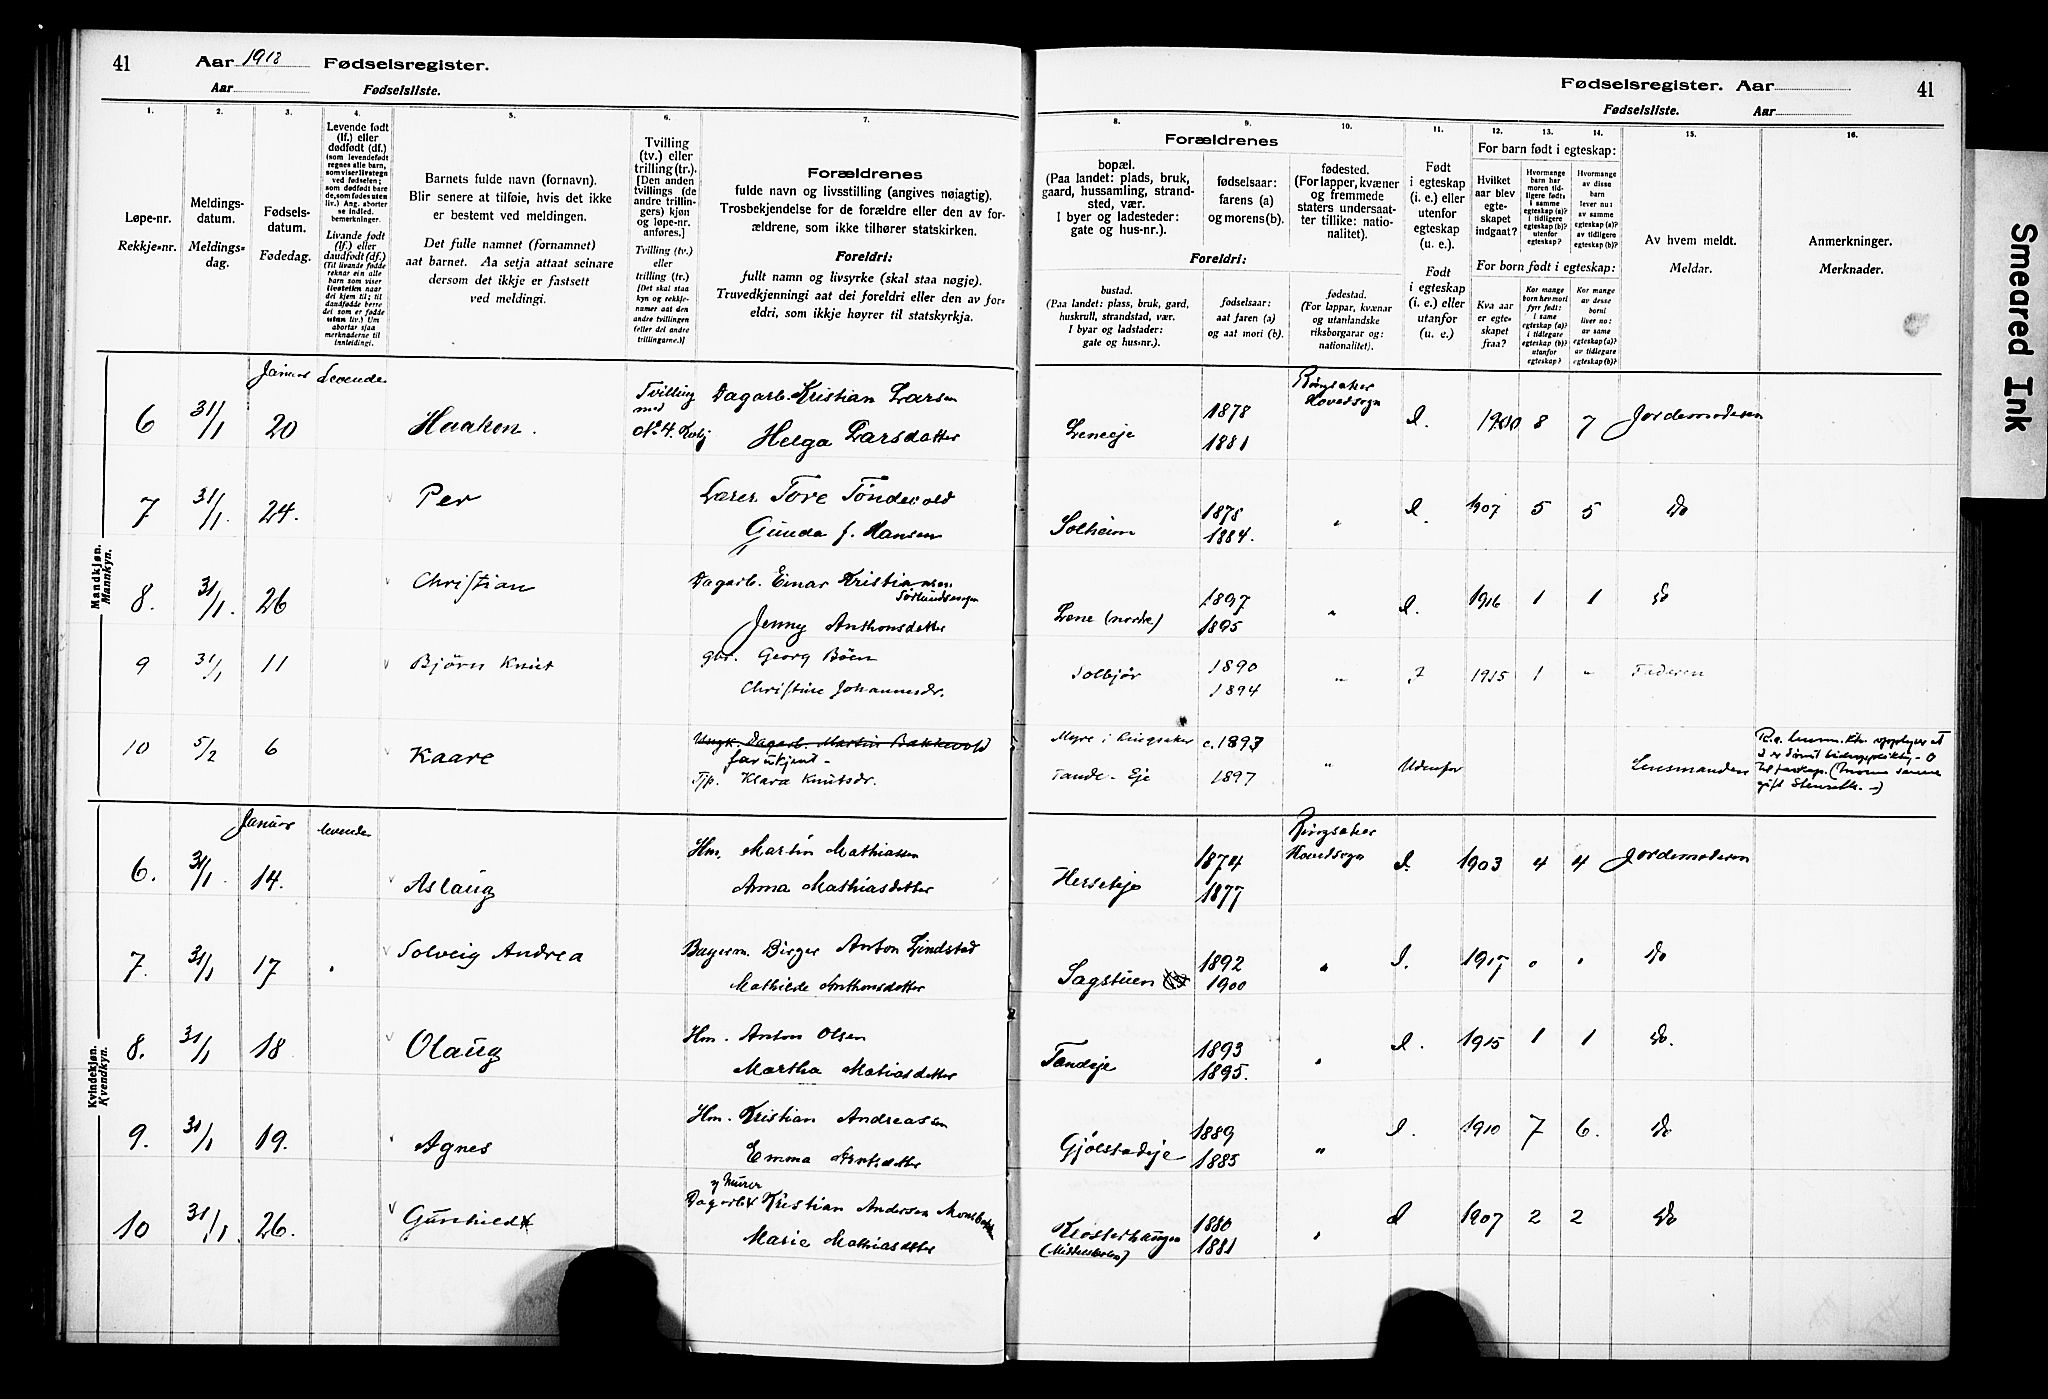 41 Aar 1918 Fødselsregister.
Aar Fødselsliste.
Fødselsregister. Aar 41
Fødselsliste. Aar
1. 2. 3. 4. 5. 6. 7. 8. 9. 10. 11. 12. 13. 14. 15. 16.
Løpe-nr.
Rekkje-nr.
Meldings-
datum.
Meldings-
dag.
Fødsels-
datum.
Fødedag.
Levende født
(lf.) eller
dødfødt (df.)
(som levendefødt
regnes alle barn,
som viser livstegn
ved fødselen;
som dødfødt bare
de, som fødes uten
liv.) Ang. aborter
se indled.
bemerkninger.
Livande født
(lf.) eller
daudfødt (df.)
(Til livande fødde
reknar ein alle
barn som viser
livsteikn naar
dei kjem til; til
daudfødde berre
dei som er fødde
utan liv.) Um
abortar sjaa
merknaderne til
innleidingi.
Barnets fulde navn (fornavn).
Blir senere at tilføie, hvis det ikke
er bestemt ved meldingen.
Det fulle namnet (fornamnet)
aat barnet. Aa setja attaat seinare
dersom det ikkje er fastsett
ved meldingi.
Tvilling
(tv.) eller
trilling (tr.).
[Den anden
tvillings (de
andre trillin-
gers) kjøn
og løpe-nr.
anføres.]
Tvilling (tv.)
eller
trilling (tr.)
[Det skal staa
kyn og rekkje-
numer aat den
andre tvillingen
(eller dei andre
trillingarne.)]
Forældrenes
fulde navn og livsstilling (angives nøiagtig).
Trosbekjendelse for de forældre eller den av for-
ældrene, som ikke tilhører statskirken.
Foreldri:
fullt namn og livsyrke (skal staa nøgje).
Truvedkjenningi aat dei foreldri eller den av for-
eldri, som ikkje høyrer til statskyrkja.
Forældrenes
bopæl.
(Paa landet: plads, bruk,
gaard, hussamling, strand-
sted, vær.
I byer og ladesteder:
gate og hus-nr.).
fødselsaar:
farens (a)
og morens (b).
fødested.
(For lapper, kvæner
og fremmede
staters undersaat-
ter tillike: natio-
nalitet).
Foreldri:
bustad.
(Paa landet: plass, bruk, gard,
huskrull, strandstad, vær.
I byar og ladstader:
gate og hus-nr.).
fødselsaar:
aat faren (a)
og aat mori (b).
fødestad.
(For lappar, kvænar
og utanlandske
riksborgarar og:
nationalitet).
Født
i egteskap
(i. e.) eller
utenfor
egteskap
(u. e.).
Født
i egteskap
(i. e.) eller
utanfor
(u. e.).
For barn født i egteskap:
Hvilket
aar blev
egte-
skapet
indgaat?
Hvormange
barn har
moren tid-
ligere født:
i samme
egteskap (a)?
i tidligere
egteskap (b)?
utenfor
egteskap?
Hvormange
av disse
barn
lever nu:
av samme
egteskap (a)?
av tidligere
egteskap (b)?
For born født i egteskap:
Kva aar
er egte-
skapet
fraa?
Kor mange
born hev mori
fyrr født:
i same
egteskap (a)?
i tidlegare
egteskap (b)?
utanfor
egteskap?
Kor mange
av desse
borni
liver no:
av same
egteskap (a)?
av tidlegare
egteskap (b)?
Av hvem meldt.
Meldar.
Anmerkninger.
Merknader.
Mandkjøn.
Mannkyn.
Januar Levende
6 31/1 20 Haaken. Tvilling med No 4. Dagarb. Kristian Larsen
Helga Larsdatter
Ringsaker Hovedsogn
1878 1881 I. 1900 8 7 Jordemoderen
7 31/1. 24. Per Lærer Tore Tøndevold
Gunda f. Hansen
Solheim 1878 1884. " I. 1907 5 5 Do
8. 31/1. 26 Christian Dagarb. Einar Kristiansen
Jenny Anthonsdatter
Lene (nordre) 1897 1895 " I. 1916 1 1 Do
9 31/1 11 Bjørn Knut gbr. Georg Bøen
Christine Johannesdr.
Solbjør 1890 1894 " I 1915 1 " Faderen
10 5/2 6 Kaare Ungk. Dagarb. Martin Bakkevold
far ukjent -
Tjp. Klara Knutsdr.
Myre i Ringsaker c. 1893
Tande - Eje 1897 " Udenfor Lensmanden
Kvindekjøn.
Kvendkyn.
Januar levende
6. 31/1. 14. Aslaug Hm. Martin Mathiassen
Anna Mathiasdatter
Ringsaker Hovedsogn
1874 1877 I. 1903 4 4 Jordemoderen
7. 31/1 17 " Solveig Andrea Bagerm. Birger Anton Lindstad
Mathilde Anthonsdatter
Sagstuen 1892 1900 " I. 1917 " " Do
8. 31/1 18 Olaug Hm. Anton Olsen
Martha Matiasdatter
Tandeje 1893 1895. " I. 1915 1 1 Do.
9. 31/1 19. Agnes Hm. Kristian Andreassen
Emma
Gjølstadeje 1889 1885 " I. 1910 7 6. Do
10 31/1. 26. Gunhild Murer
Dagarb. Kristian Andersen
Marie Mathiasdatter
Klosterhaugen 1880 1881 " I 1907 2 2 Do
Smeared Ink